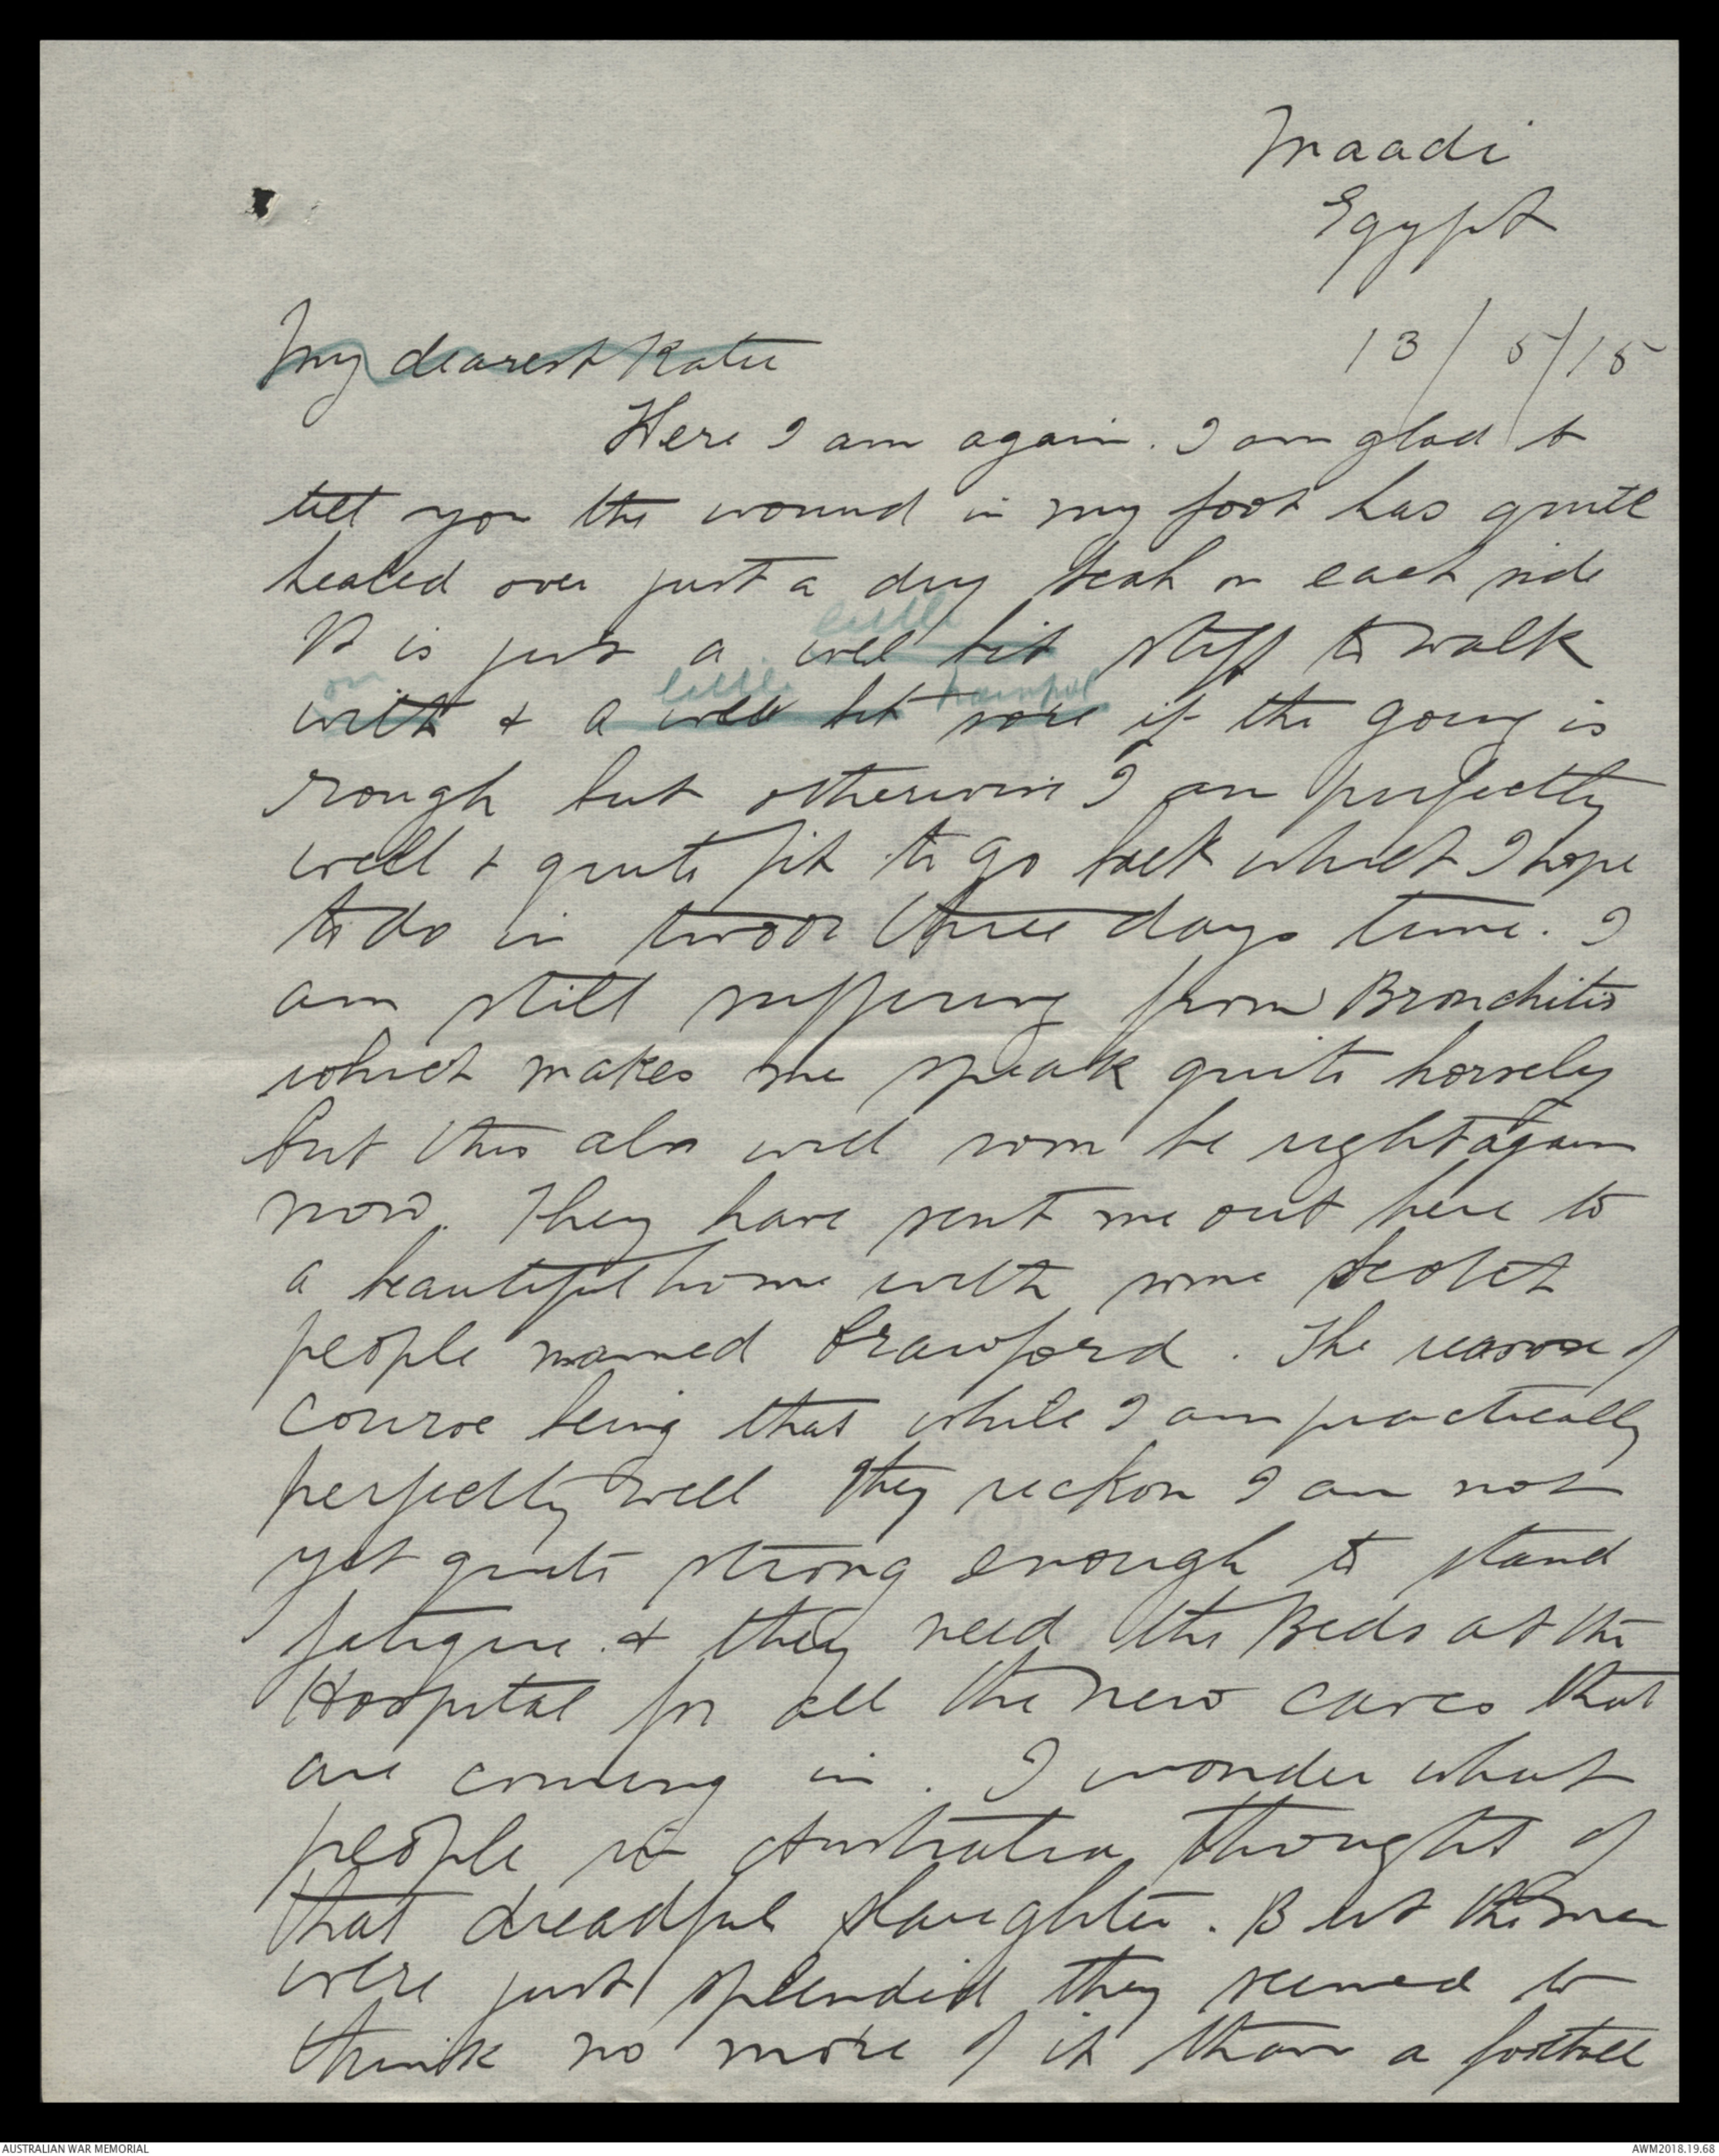 Maadi
Egypt
13/5/15
My dearest Katie
Here I am again. I am glad to
tell you the wound in my foot has quite
healed over just a dry scab on each side
little
It is just a wee bit stiff to walk
on little painful
with & a wee bit sore if the going is
rough but otherwise I am perfectly
well & quite fit to go back which I hope
to do in two or three days time. I
am still suffering from Bronchitis
which makes me speak quite horsely
but this also will soon be right again
now. They have sent me out here to
a beautiful home with some Scotch
people named Crawford. The reason of
course being that while I am practically
perfectly well they reckon I am not
yet quite strong enough to stand
fatigue & they need the Beds at the
Hospital for all the new cases that
are coming in. I wonder what
people in Australia thought of
that dreadful slaughter. But the men
were just splendid they seemed to
think no more of it than a football
AUSTRALIAN WAR MEMORIAL
AWM2018.19.68